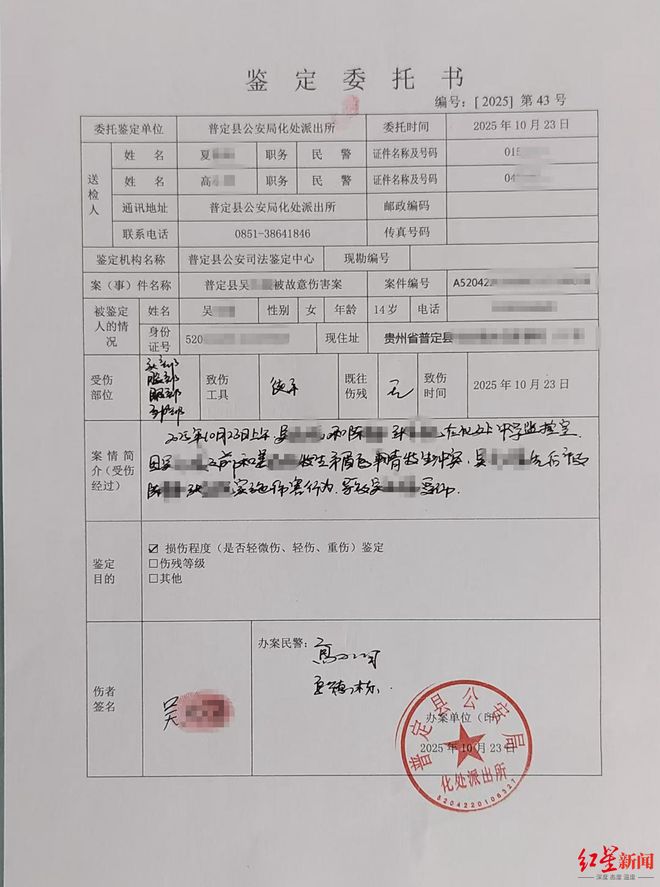 鉴定委托书
编号：[2025] 第 43 号
委托鉴定单位 普定县公安局化处派出所 委托时间 2025 年 10 月 23 日
送检人
姓 名 夏 职务 民 警 证件名称及号码 015
姓 名 高 职务 民 警 证件名称及号码 04
通讯地址 普定县公安局化处派出所 邮政编码
联系电话 0851-38641846 传真号码
鉴定机构名称 普定县公安司法鉴定中心 现勘编号
案（事）件名称 普定县吴 被故意伤害案 案件编号 A520422
被鉴定人的情况
姓名 吴 性别 女 年龄 14 岁 电话
身份证号 520 现住址 贵州省普定县
受伤部位 头部 腹部 腿部 致伤工具 徒手 既往伤残 无 致伤时间 2025 年 10 月 23 日
案情简介（受伤经过）
2025年10月23日上午 吴 和陈 张 在化处中学监控室
因吴 之前和姜 发生矛盾 事情发生冲突，吴 先后被
陈 张 实施伤害行为，导致吴 受伤.
鉴定目的
☑ 损伤程度（是否轻微伤、轻伤、重伤）鉴定
□伤残等级
□其他
伤者签名 吴
办案民警：
办案单位（印）
2025 年 10 月 23 日
普定县公安局
化处派出所
5204220106327
红星新闻
深度 态度 温度